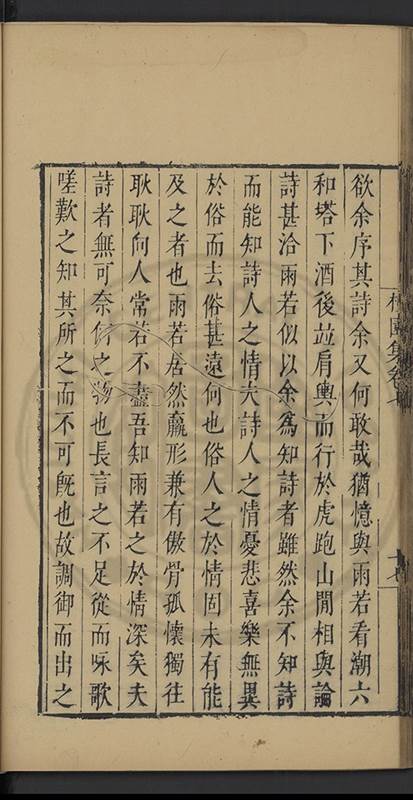 欲余序其詩余又何敢哉猶憶與雨若看潮六
和塔下酒後並肩輿而行於虎跑山閒相與論
詩甚洽雨若似以余爲知詩者雖然余不知詩
而能知詩人之情夫詩人之情憂悲喜樂無異
於俗而去俗甚遠何也俗人之於情固未有能
及之者也雨若居然羸形兼有傲骨孤懷獨往
耿耿向人常若不盡吾知雨若之於情深矣夫
詩者無可奈何之物也長言之不足從而咏歌
嗟歎之知其所之而不可旣也故調御而出之
集卷七